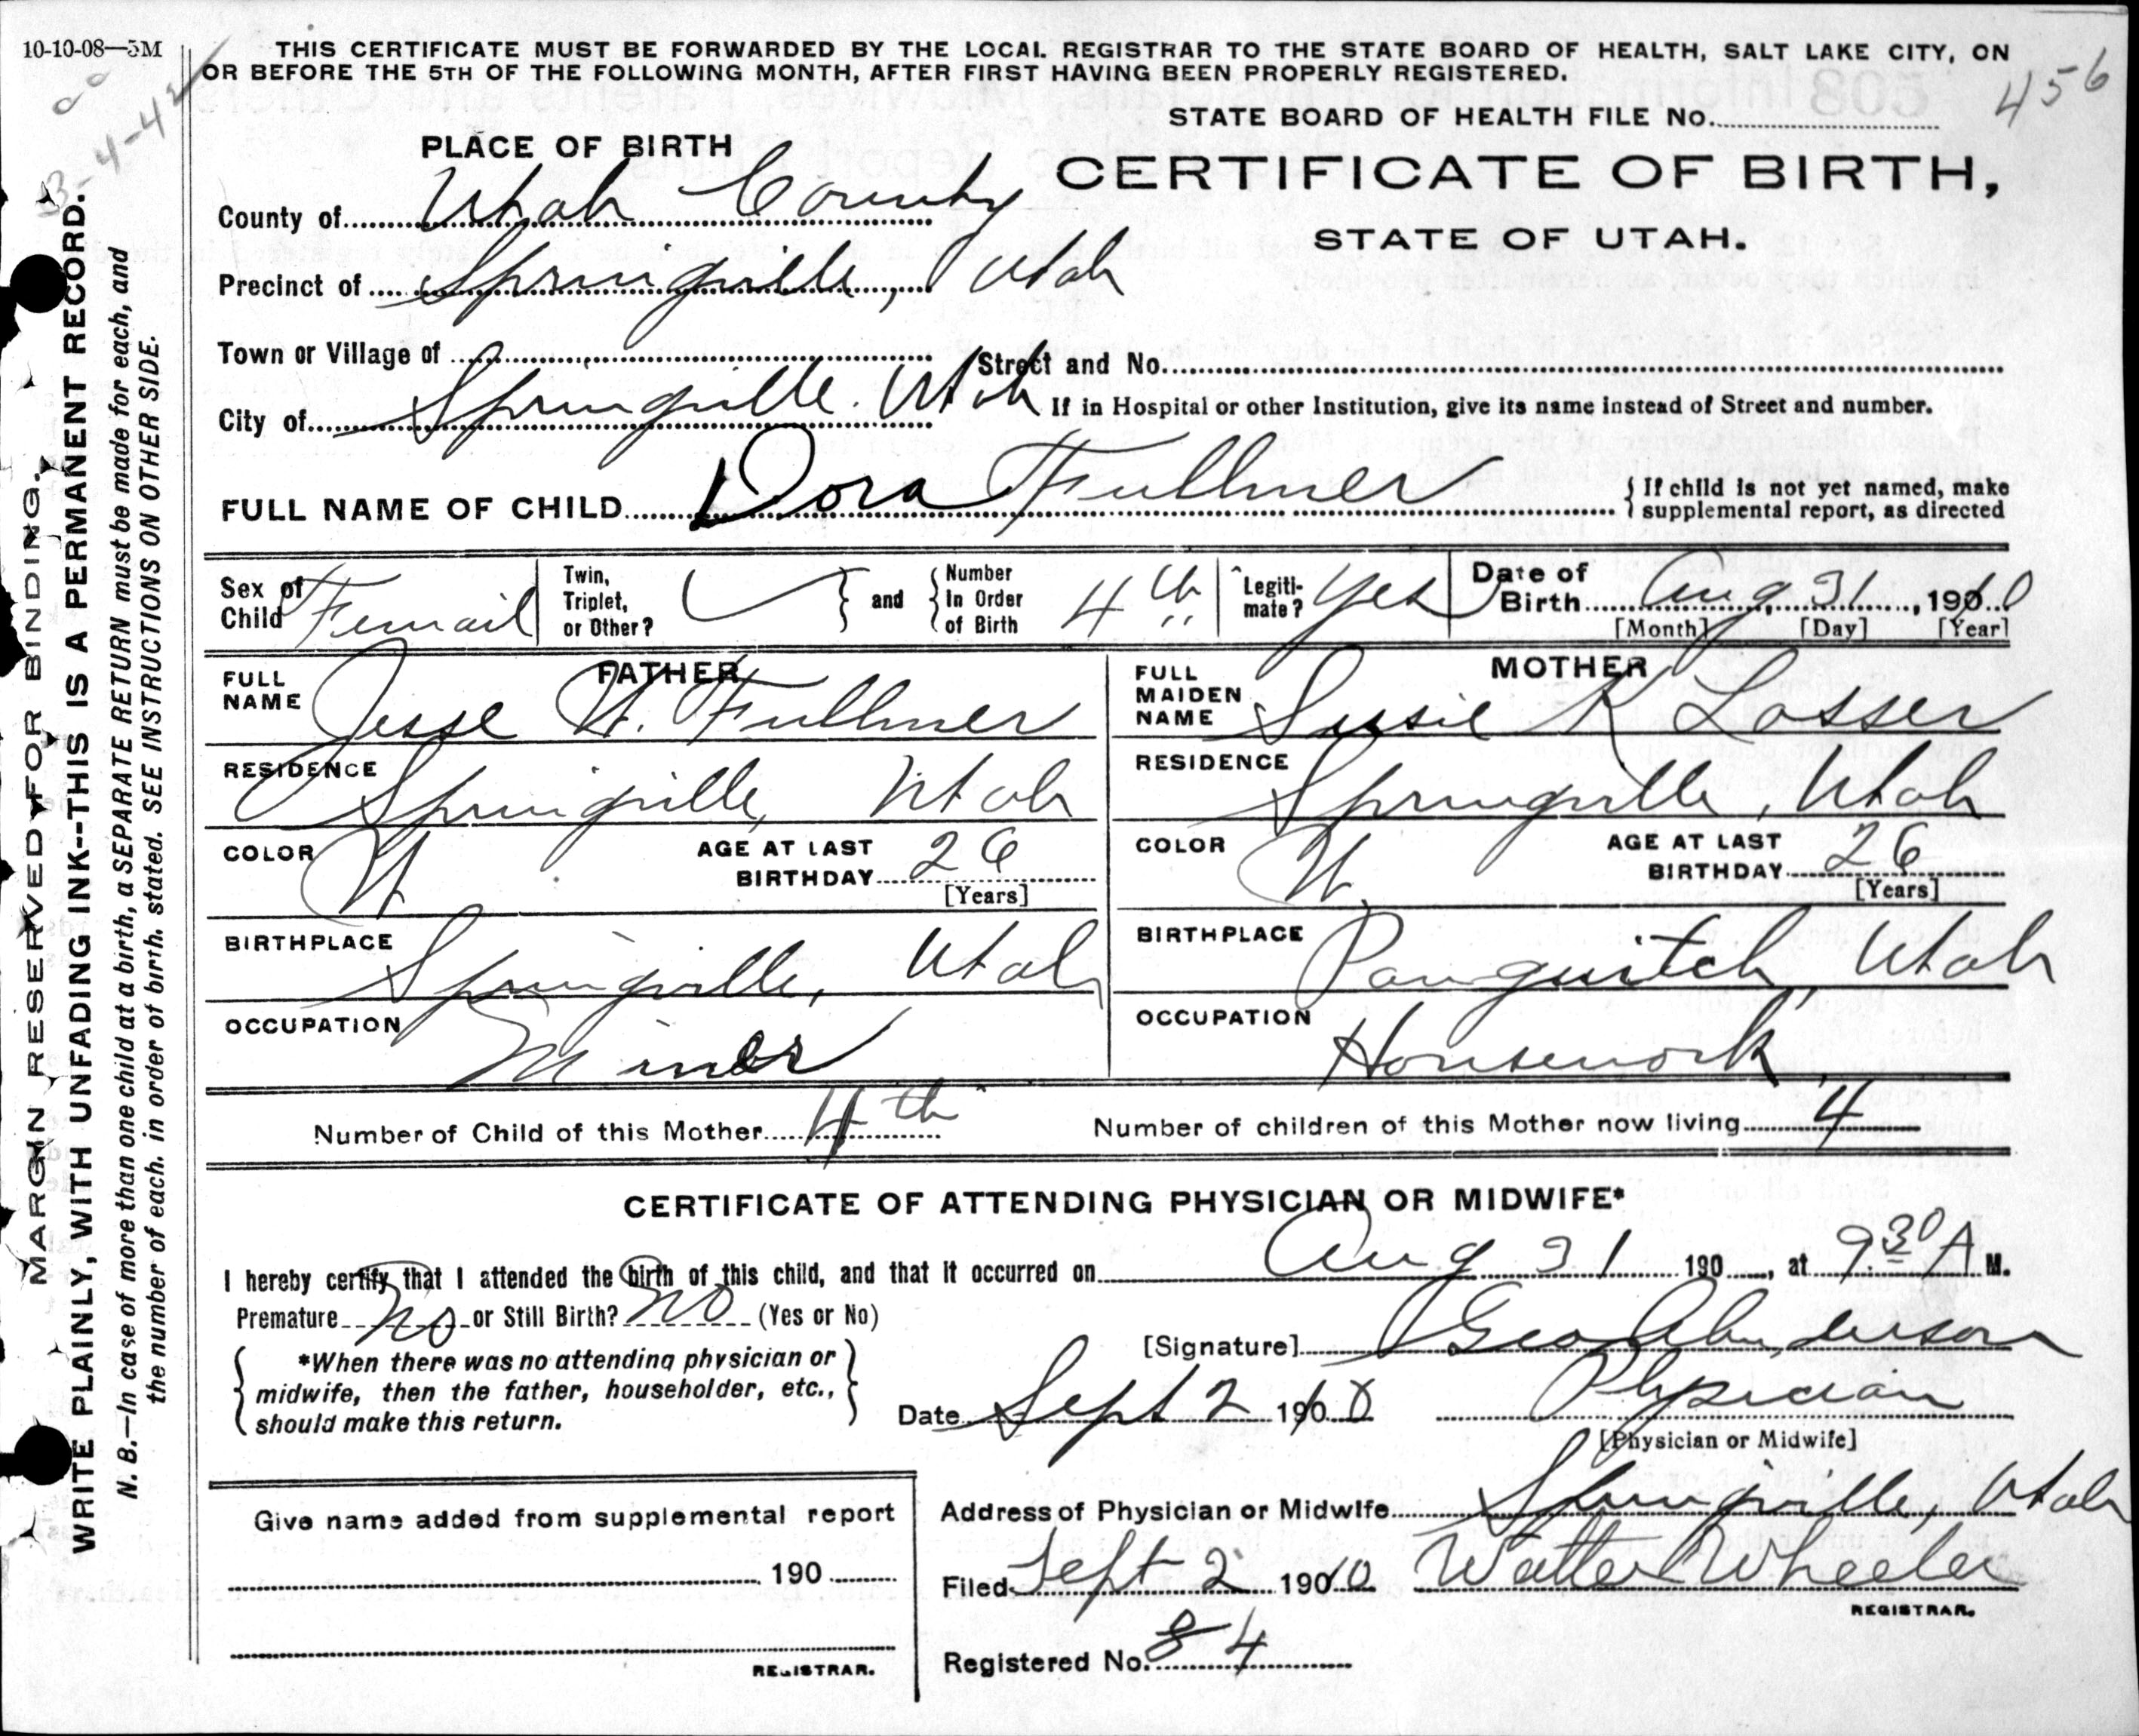 10-10-08—5M
THIS CERTIFICATE MUST BE FORWARDED BY THE LOCAL REGISTRAR TO THE STATE BOARD OF HEALTH, SALT LAKE CITY, ON
OR BEFORE THE 5TH OF THE FOLLOWING MONTH, AFTER FIRST HAVING BEEN PROPERLY REGISTERED.
456
STATE BOARD OF HEALTH FILE No.
PLACE OF BIRTH
CERTIFICATE OF BIRTH,
STATE OF UTAH.
County of Utah County
Precinct of Springville, Utah
Town or Village of
Street and No.
City of Springville. Utah
If in Hospital or other Institution, give its name instead of Street and number.
FULL NAME OF CHILD Dora Fullmer
{ If child is not yet named, make
supplemental report, as directed
Sex of Child Femail
Twin, Triplet, or Other?
} and { Number In Order of Birth 4th
Legiti-mate? Yes
Date of Birth Aug. 31, 1910
[Month] [Day] [Year]
FATHER
FULL NAME Jesse W. Fullmer
RESIDENCE Springville, Utah
COLOR W. AGE AT LAST BIRTHDAY 26
[Years]
BIRTHPLACE Springville, Utah
OCCUPATION Miner
MOTHER
FULL MAIDEN NAME Susie K Losser
RESIDENCE Springville, Utah
COLOR W. AGE AT LAST BIRTHDAY 26
[Years]
BIRTHPLACE Panguitch, Utah
OCCUPATION Housework
Number of Child of this Mother 4th
Number of children of this Mother now living 4
CERTIFICATE OF ATTENDING PHYSICIAN OR MIDWIFE*
I hereby certify that I attended the birth of this child, and that it occurred on Aug 31 190, at 9 30 A M.
Premature no or Still Birth? no (Yes or No)
[Signature] Geo Anderson
*When there was no attending physician or
midwife, then the father, householder, etc.,
should make this return.
Date Sept 2 1910
Physician
[Physician or Midwife]
Address of Physician or Midwife Springville, Utah
Filed Sept 2 1910 Walter Wheeler
REGISTRAR.
Registered No. 84
Give name added from supplemental report
190
REGISTRAR.
MARGIN RESERVED FOR BINDING.
WRITE PLAINLY, WITH UNFADING INK--THIS IS A PERMANENT RECORD.
N. B.—In case of more than one child at a birth, a SEPARATE RETURN must be made for each, and
the number of each, in order of birth, stated. SEE INSTRUCTIONS ON OTHER SIDE.